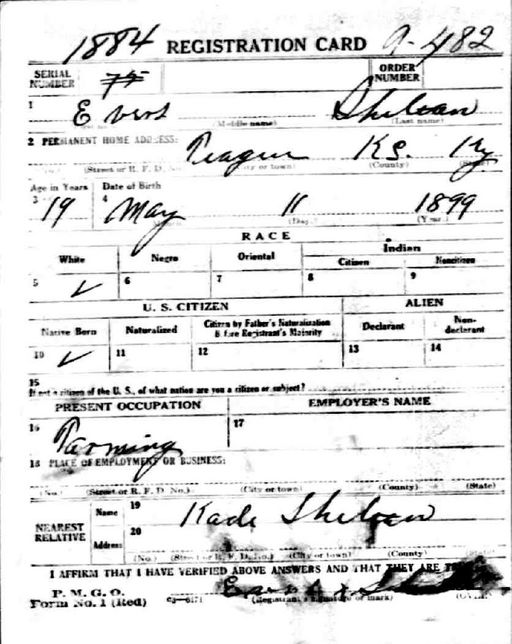 1884 REGISTRATION CARD A-482
SERIAL NUMBER 75 ORDER NUMBER
1 Evert Sheloan
(Middle name) (Last name)
2 PERMANENT HOME ADDRESS: Teague Ks. Ky
(Street or R. F. D. No.) (City or town) (County) (State)
Age in Years Date of Birth
3 19 4 May 11 1899
(Day.) (Year.)
RACE
White Negro Oriental Indian
Citizen Noncitizen
5 ✓ 6 7 8 9
U. S. CITIZEN ALIEN
Native Born Naturalized Citizen by Father's Naturalization Before Registrant's Majority Declarant Non-declarant
10 ✓ 11 12 13 14
15
If not a citizen of the U. S., of what nation are you a citizen or subject?
PRESENT OCCUPATION EMPLOYER'S NAME
16 Farming 17
18 PLACE OF EMPLOYMENT OR BUSINESS:
(No.) (Street or R. F. D. No.) (City or town) (County) (State)
NEAREST RELATIVE Name 19 Kade Sheloan
Address 20
(No.) (Street or R. F. D. No.) (City or town) (County)
I AFFIRM THAT I HAVE VERIFIED ABOVE ANSWERS AND THAT THEY ARE
P. M. G. O.
Form No. 1 (Red) 03-6171 (Registrant's signature or mark)